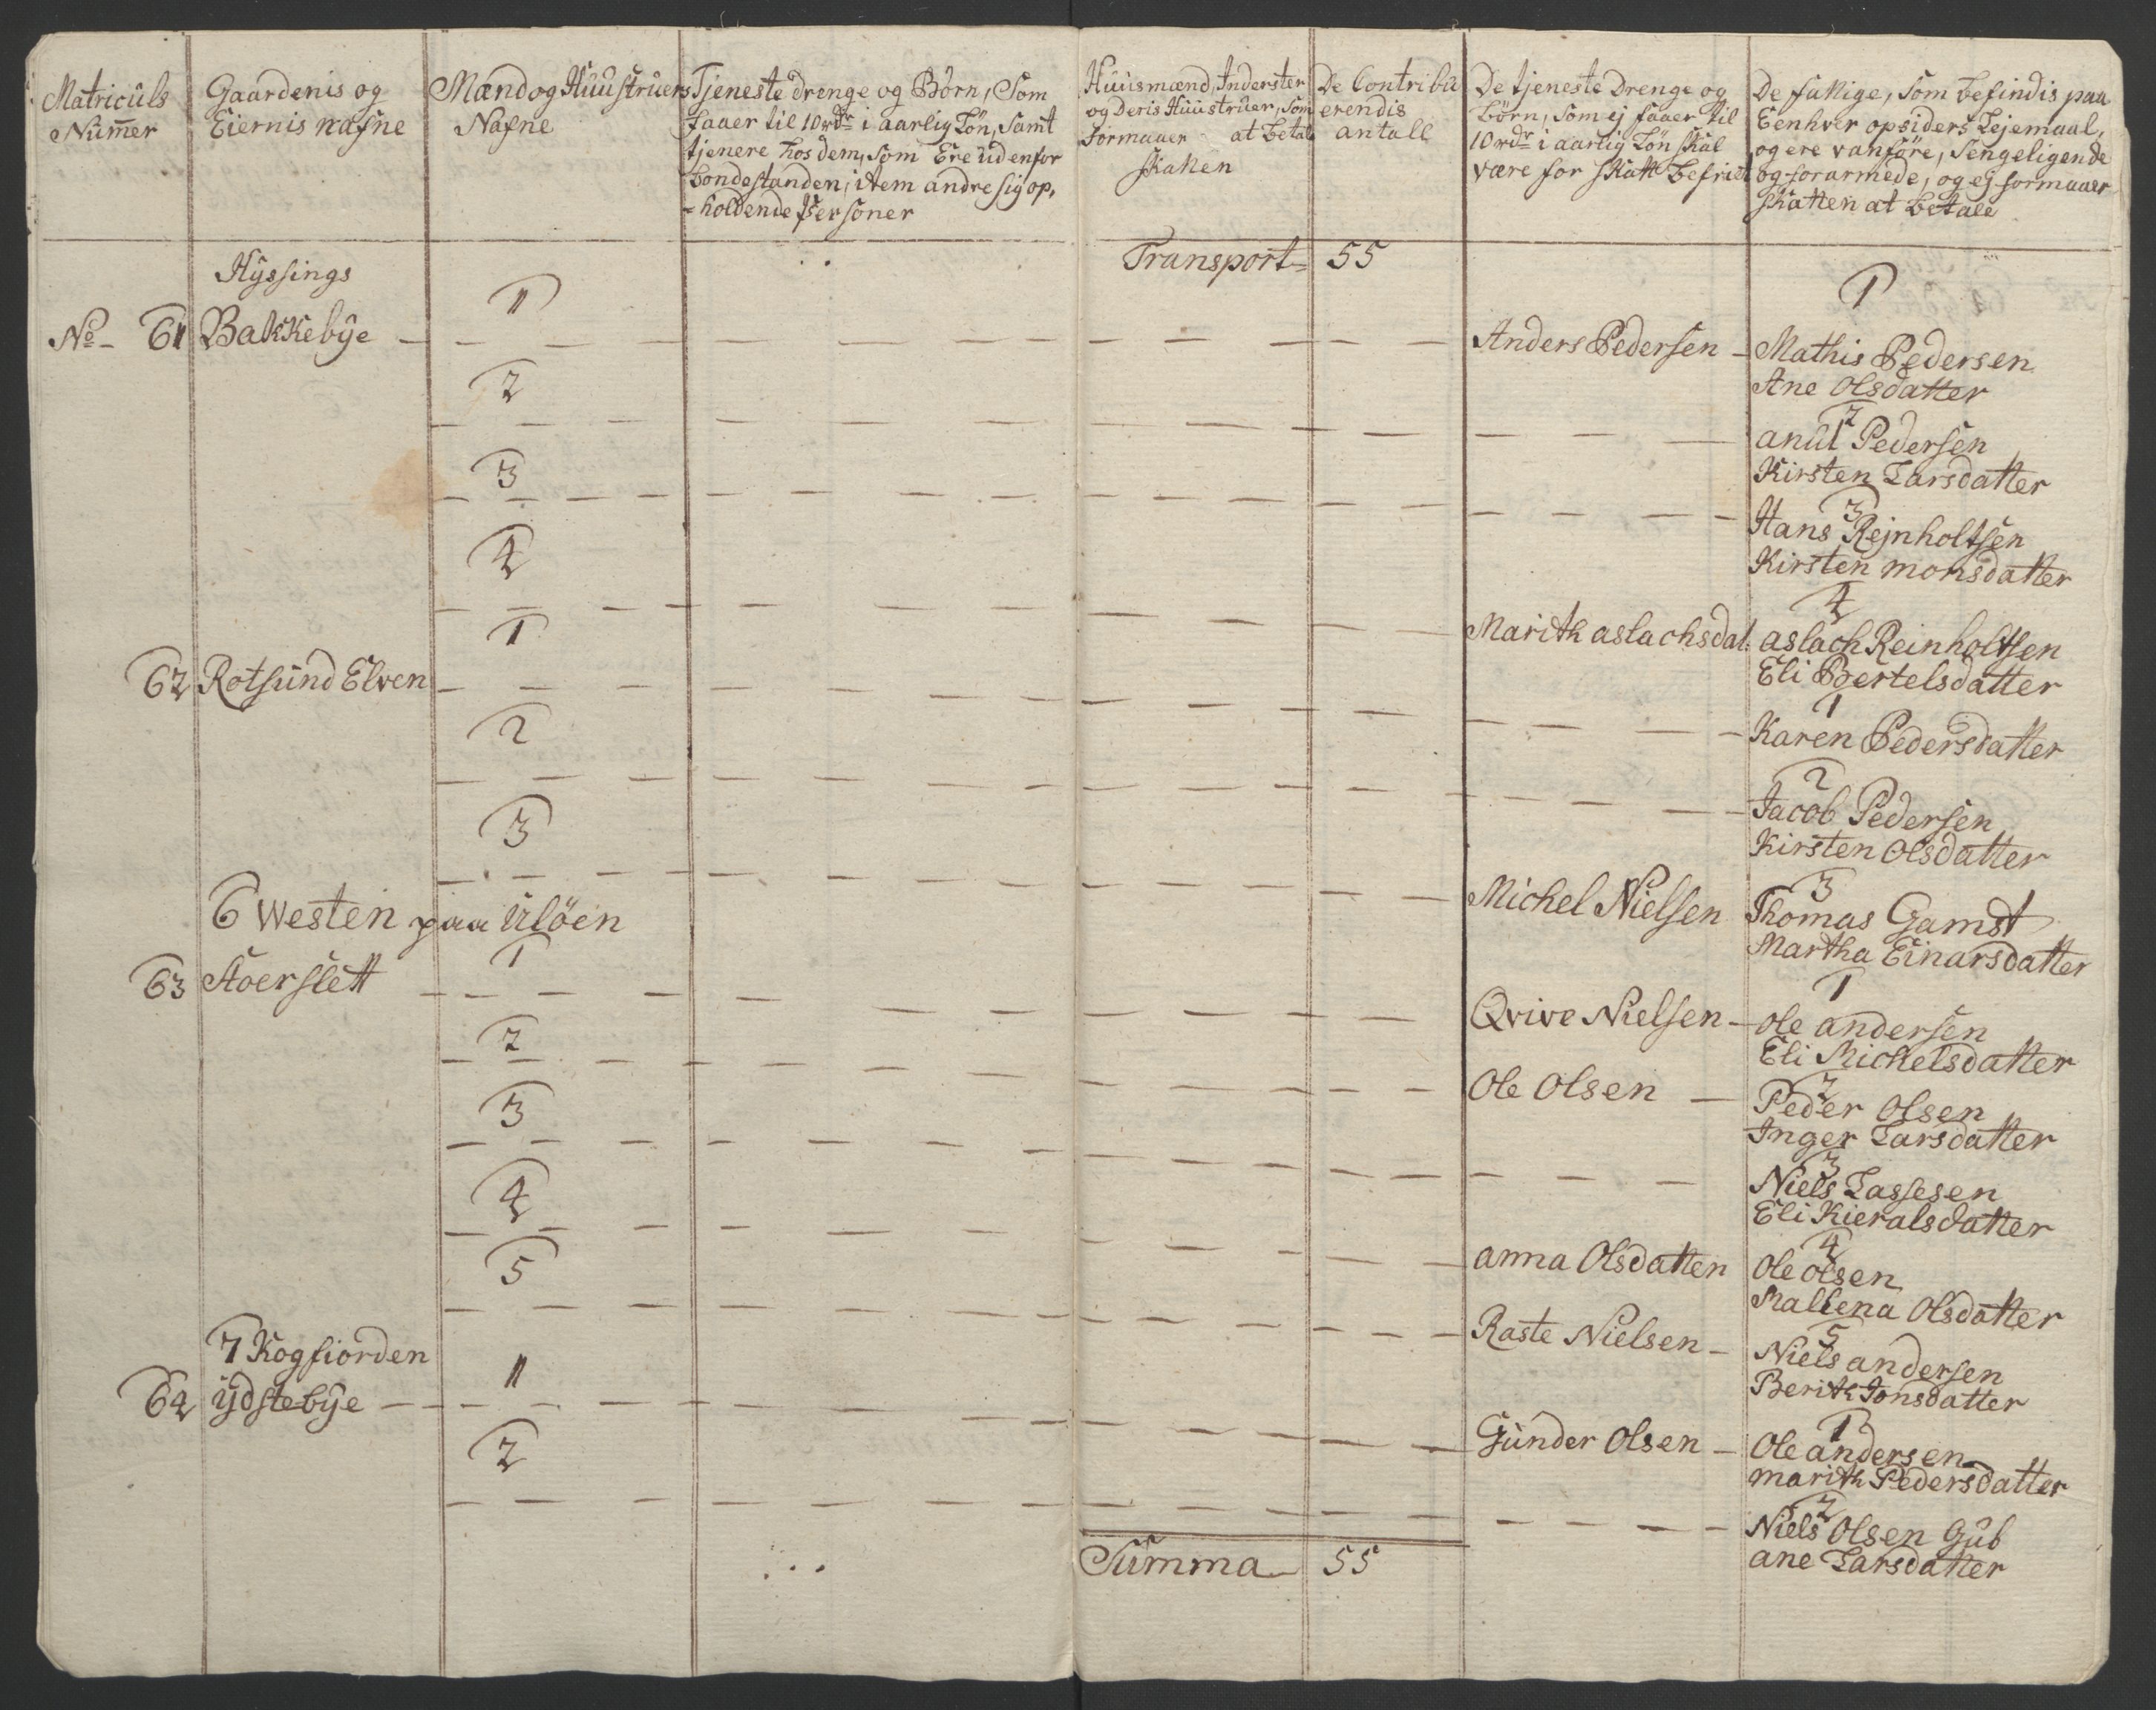 Matriculs
Numer
Gaardenis og
Eiernis nafne
Mænd og Huustruers
Nafne
Tjeneste drenge og Börn, Som
faaer til 10 rdr i aarlig Lön, Samt
tjenere hos dem, som Ere udenfor
bondestanden, item andre sig op,
=holdende Personer
Huusmænd, Inderster
og Deris Huustruer, Som
formaaer at betale
skatten
De Contribu
erendis
antall
De tjeneste Drenge og
Börn, Som ej faaer til
10 rdr i aarlig Lön skal
være for skatt befriet
De fattige, Som befindis paa
Eenhver opsiders Lejemaal,
og ere vanföre, Sengeligende
og forarmede, og ej formaaer
skatten at betale
Transport= 55
Hyssings
No- 61 Bakkebye
1
Anders Pedersen
1
Mathis Pedersen
Ane Olsdatter
2
2
anul Pedersen
Kirsten Larsdatter
3
3
Hans Rejnholtsen
Kirsten monsdatter
4
Marith aslachsdat:
4
aslach Reinholtsen
Eli Bertelsdatter
62 Rotsund Elven
1
1
Karen Pedersdatter
2
2
Jacob Pedersen
Kirsten Olsdatter
3
Michel Nielsen
3
Thomas Gamst
Martha Einarsdatter
6 Westen paa Ulöen
63 Stoerslett
1
Qvive Nielsen
1
ole andersen
Eli Michelsdatter
2
Ole Olsen
2
Peder Olsen
Inger Larsdatter
3
3
Niels Lassesen
Eli Kieralsdatter
4
anna Olsdatter
4
Ole olsen
Mallena Olsdatter
5
Raste Nielsen
5
Niels andersen
Berith Jonsdatter
7 Kogfiorden
64 ydstebye
1
Gunder Olsen
1
Ole andersen
marith Pedersdatter
2
2
Niels Olsen Gub
ane Larsdatter
Summa 55